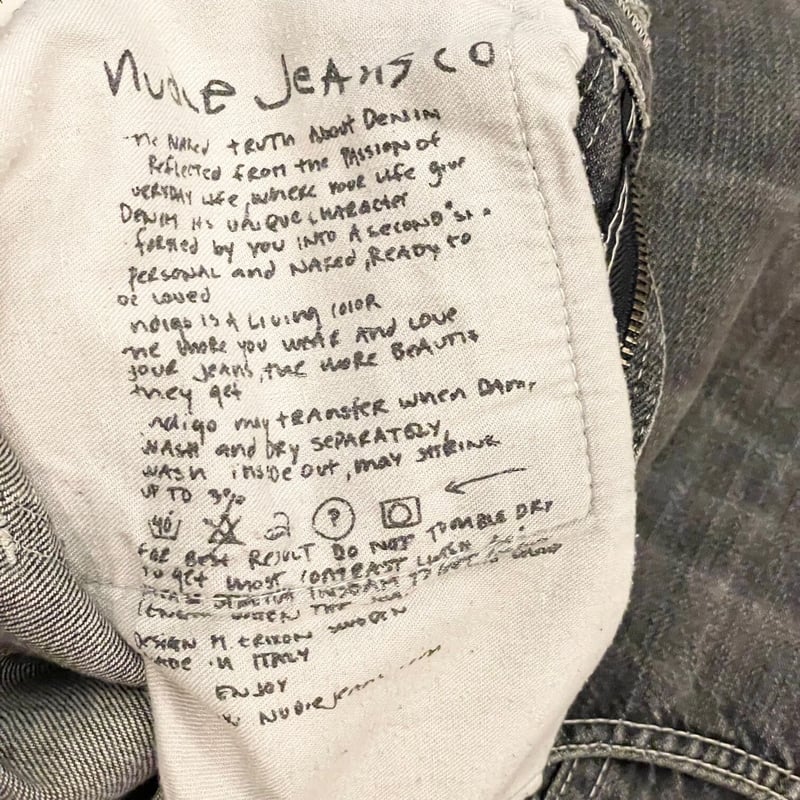 NUDIE JEANS CO
THE NAKED TRUTH ABOUT DENIM
REFLECTED FROM THE PASSION OF
VERYDAY LIFE, WHERE YOUR LIFE GIVE
DENIM ITS UNIQUE CHARACTER
FORMED BY YOU INTO A SECOND "SK
PERSONAL and NAKED, READY to
BE LOVED
NDIGO IS A LIVING COLOR
THE MORE YOU WEAR AND LOVE
YOUR JEANS, THE MORE BEAUTIF
they get
NDIGO may TRANSFER WHEN DAMP,
WASH and DRY SEPARATELY,
WASH INSIDE OUT, MAY SHRINK
UP TO 3%
40 P
FOR BEST RESULT DO NOT TUMBLE DRY
TO get MOST CONTRAST WASH
INSEAM
LENGTH WHEN THE
DESIGN M. ERIXON SWEDEN
MADE IN ITALY
ENJOY
NUDIEJEANS.COM